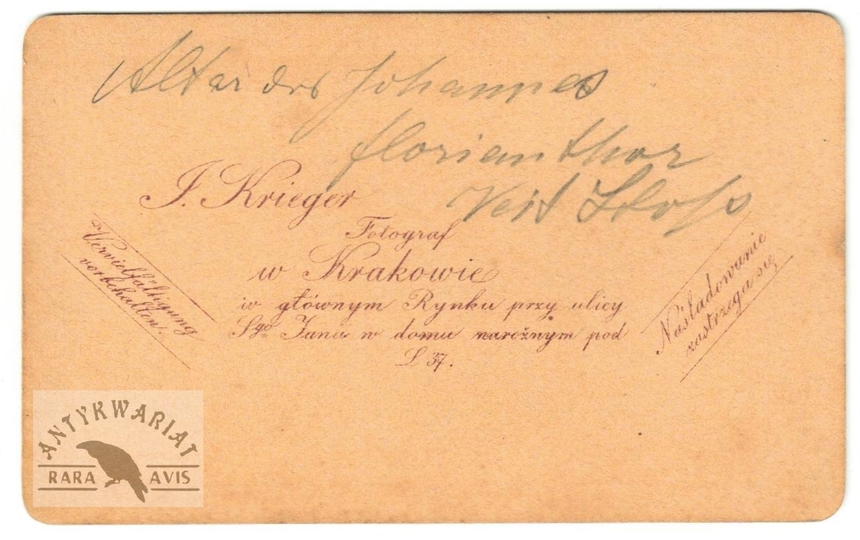 Altar des Johannes
Florianthor
Veit Stoss
I. Krieger
Fotograf
w Krakowie
w głównym Rynku przy ulicy
Sgo Jana w domu narożnym pod
L 37.
Vervielfältigung
vorbehalten.
Naśladowanie
zastrzega się
ANTYKWARIAT
RARA AVIS